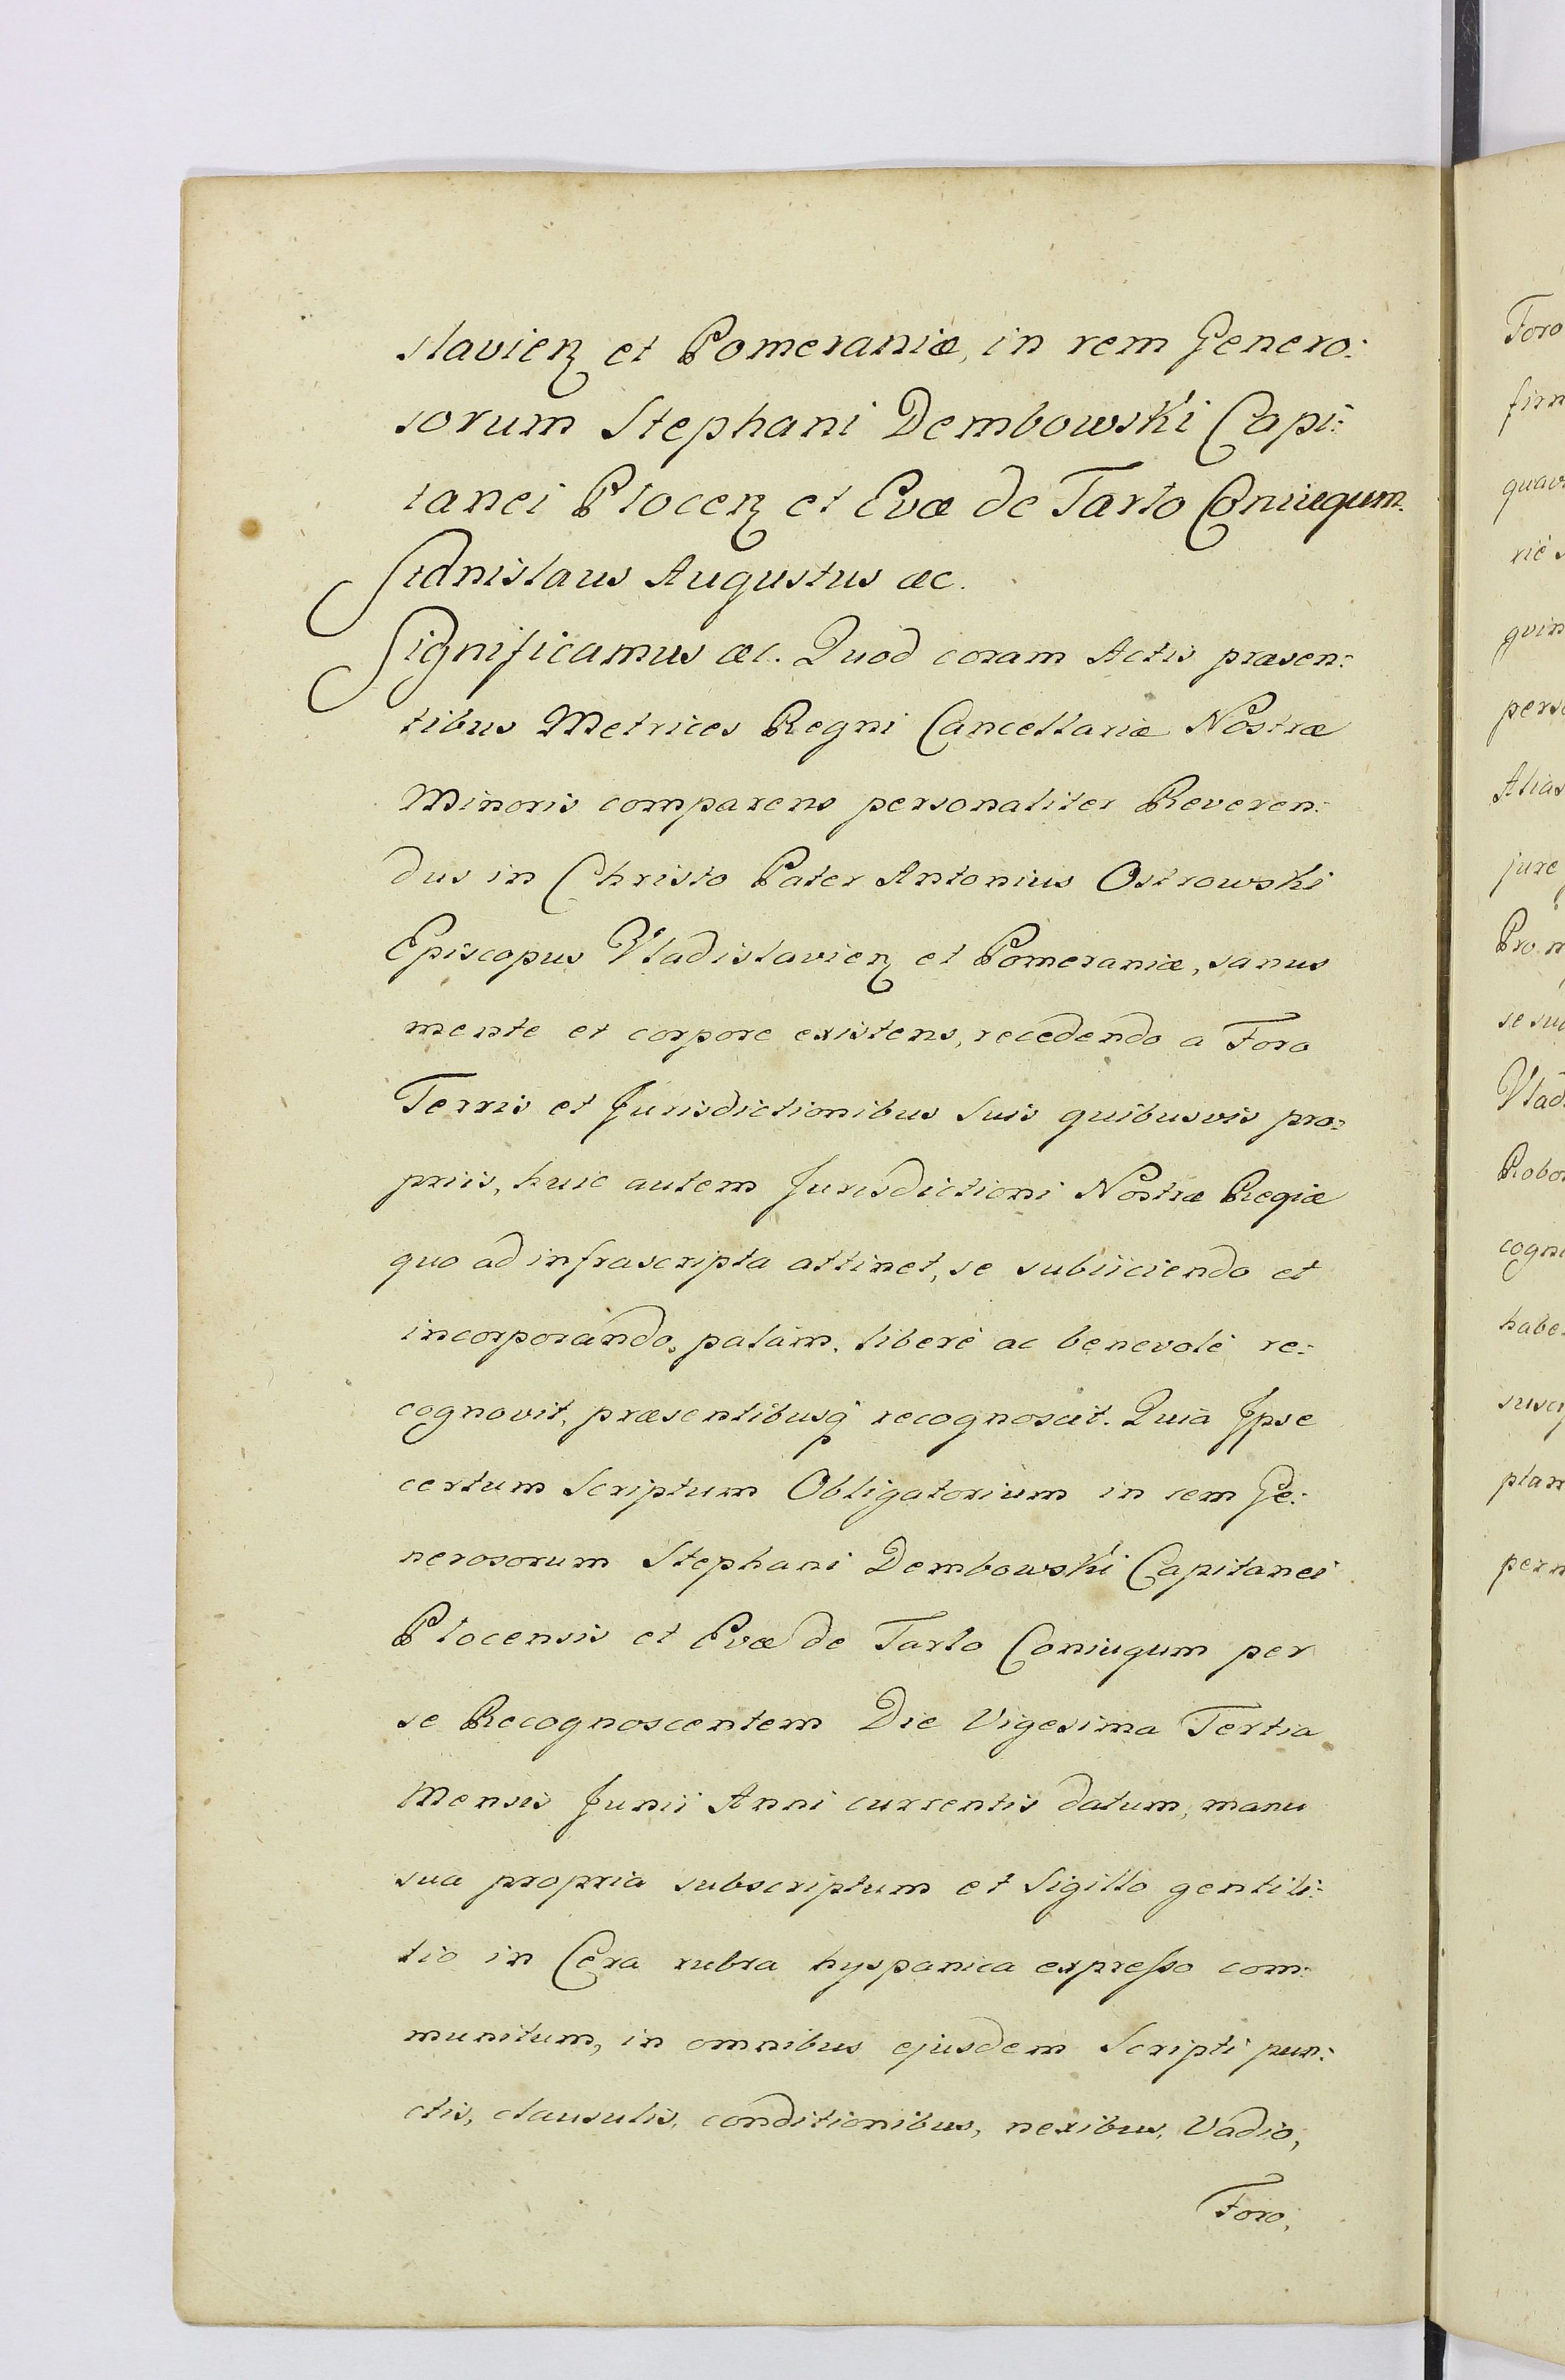 slavien et Pomeraniæ, in rem Genero:
sorum Stephani Dembowski Capi:
tanei Plocen et Evæ de Tarło Coniugum.
Stanislaus Augustus &c.
Significamus &c. Quod coram Actis præsen:
tibus Metrices Regni Cancellariæ Nostræ
Minoris comparens personaliter Reveren:
dus in Christo Pater Antonius Ostrowski
Episcopus Vladislavien et Pomeraniæ, sanus
mente et corpore existens, recedendo a Foro
Terris et Jurisdictionibus Suis quibusvis pro:
priis, huic autem Jurisdictioni Nostræ Regiæ
quo ad infrascripta attinet, se subiiciendo et
incorporando, palam, liberè ac benevolè re:
cognovit, præsentibusq recognoscit. Quia Ipse
certum Scriptum Obligatorium in rem Ge:
nerosorum Stephani Dembowski Capitanei
Plocensis et Evæ de Tarło Coniugum per
se Recognoscentem Die Vigesima Tertia
Mensis Junii Anni currentis datum, manu
sua propria subscriptum et Sigillo gentili:
tio in Cera rubra hyspanica expresso com:
munitum, in omnibus ejusdem Scripti pun:
ctis, clausulis, conditionibus, nexibus, Vadio,
Foro,
Foro
firm
quav
rie s
quin
perso
Alias
jure
Pro m
se su
Vlad
Robo
cogn
habe
susc
plan
per n